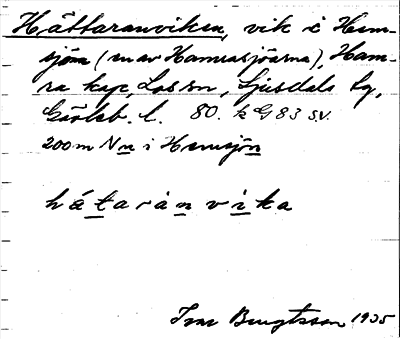 Håttaranviken, vik i Hem-
sjön (en av Hamrasjöarna), Ham-
ra kap, Los sn, Ljusdals tg,
Gävleb. l. 80. k G 83 S.V.
200 m N n i Hemsjön
håtaranvika
Ivar Bengtsson 1935